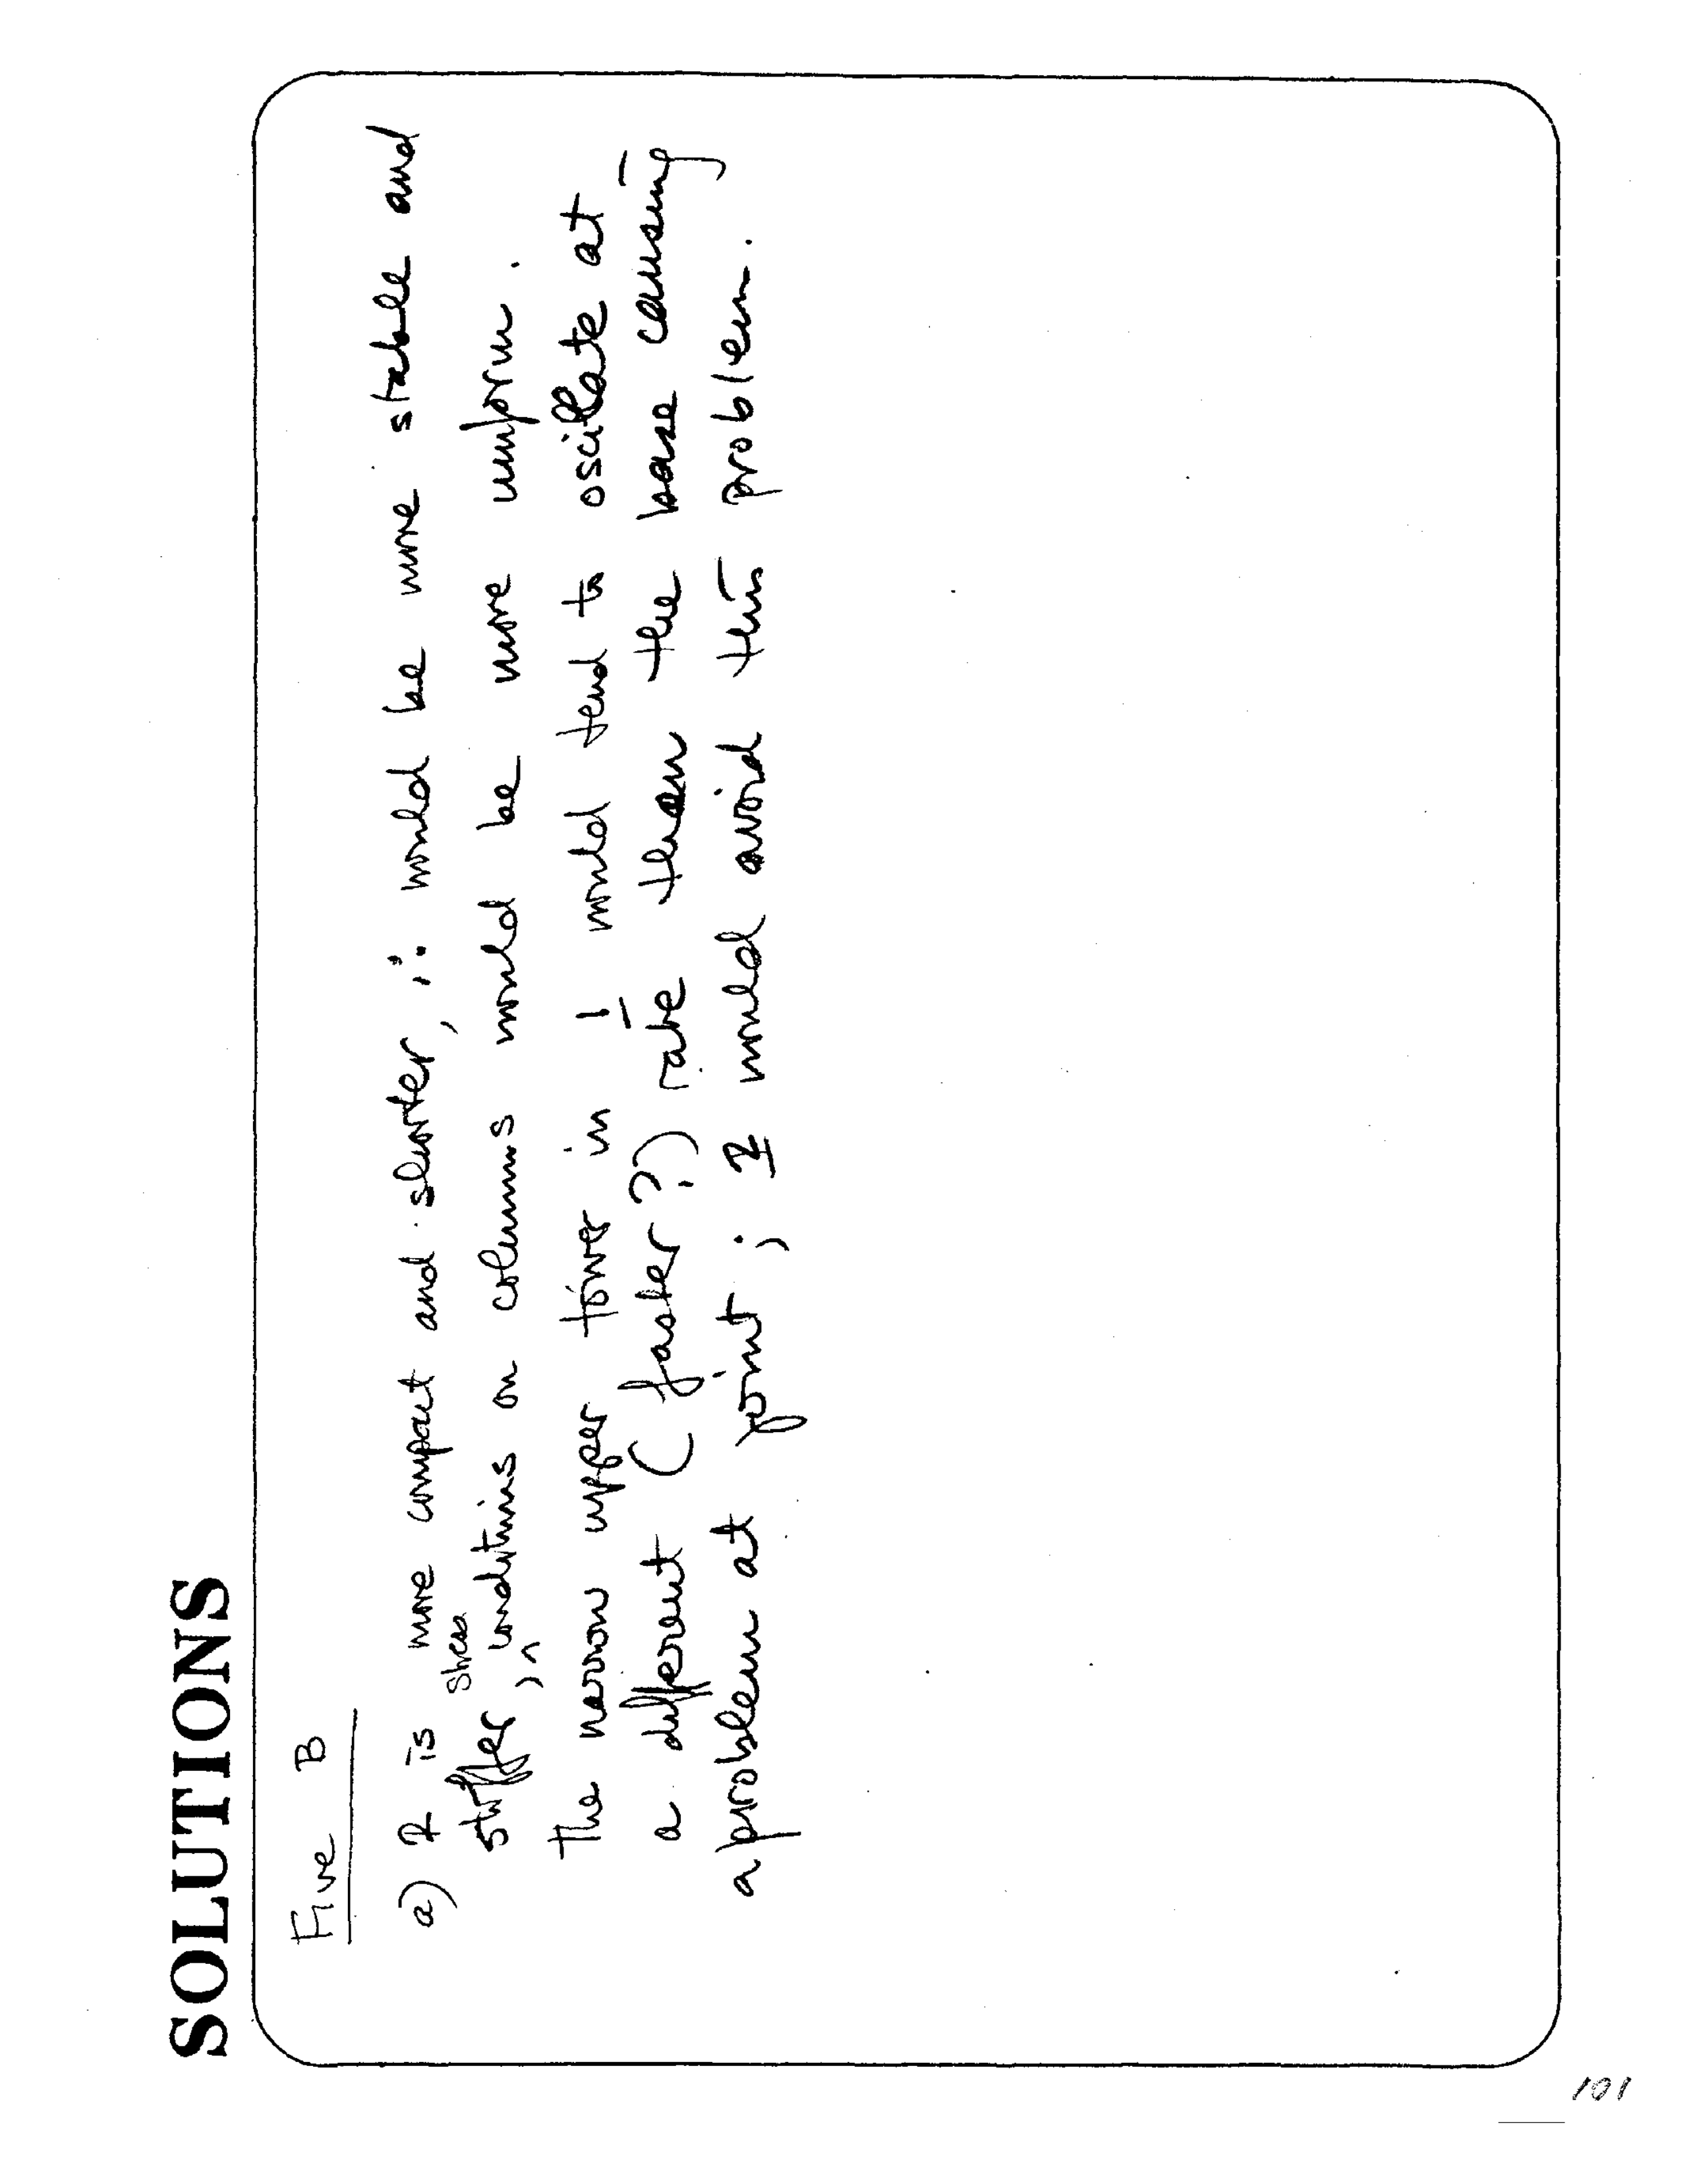 SOLUTIONS
Five B
a) 2 is more compact and shorter, ∴ would be more stable and
stiffer, stress conditions on columns would be more uniform.
The narrow upper tower in 1 would tend to oscillate at
a different (faster?) rate than the base causing
a problem at joint; 2 would avoid this problem.
101